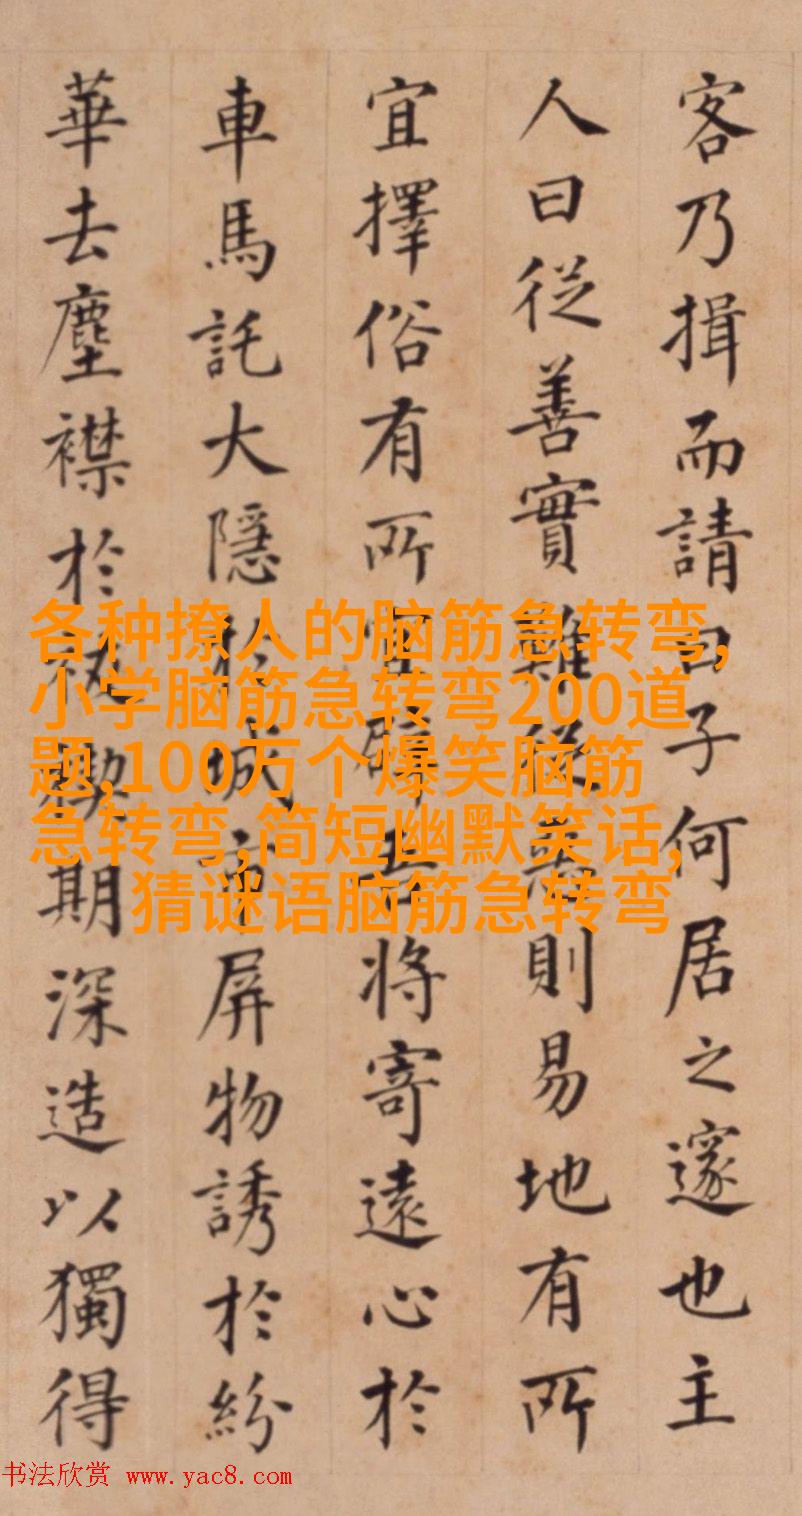 客乃揖而請曰子何居之邃也主
人曰從善實難從惡則易地有所
宜擇俗有所宜辟吾將寄遠心於
車馬託大隱於城市屏物誘於紛
華去塵襟於祓禊期深造以獨得
各种撩人的脑筋急转弯,
小学脑筋急转弯200道
题,100万个爆笑脑筋
急转弯,简短幽默笑话,
猜谜语脑筋急转弯
书法欣赏 www.yac8.com